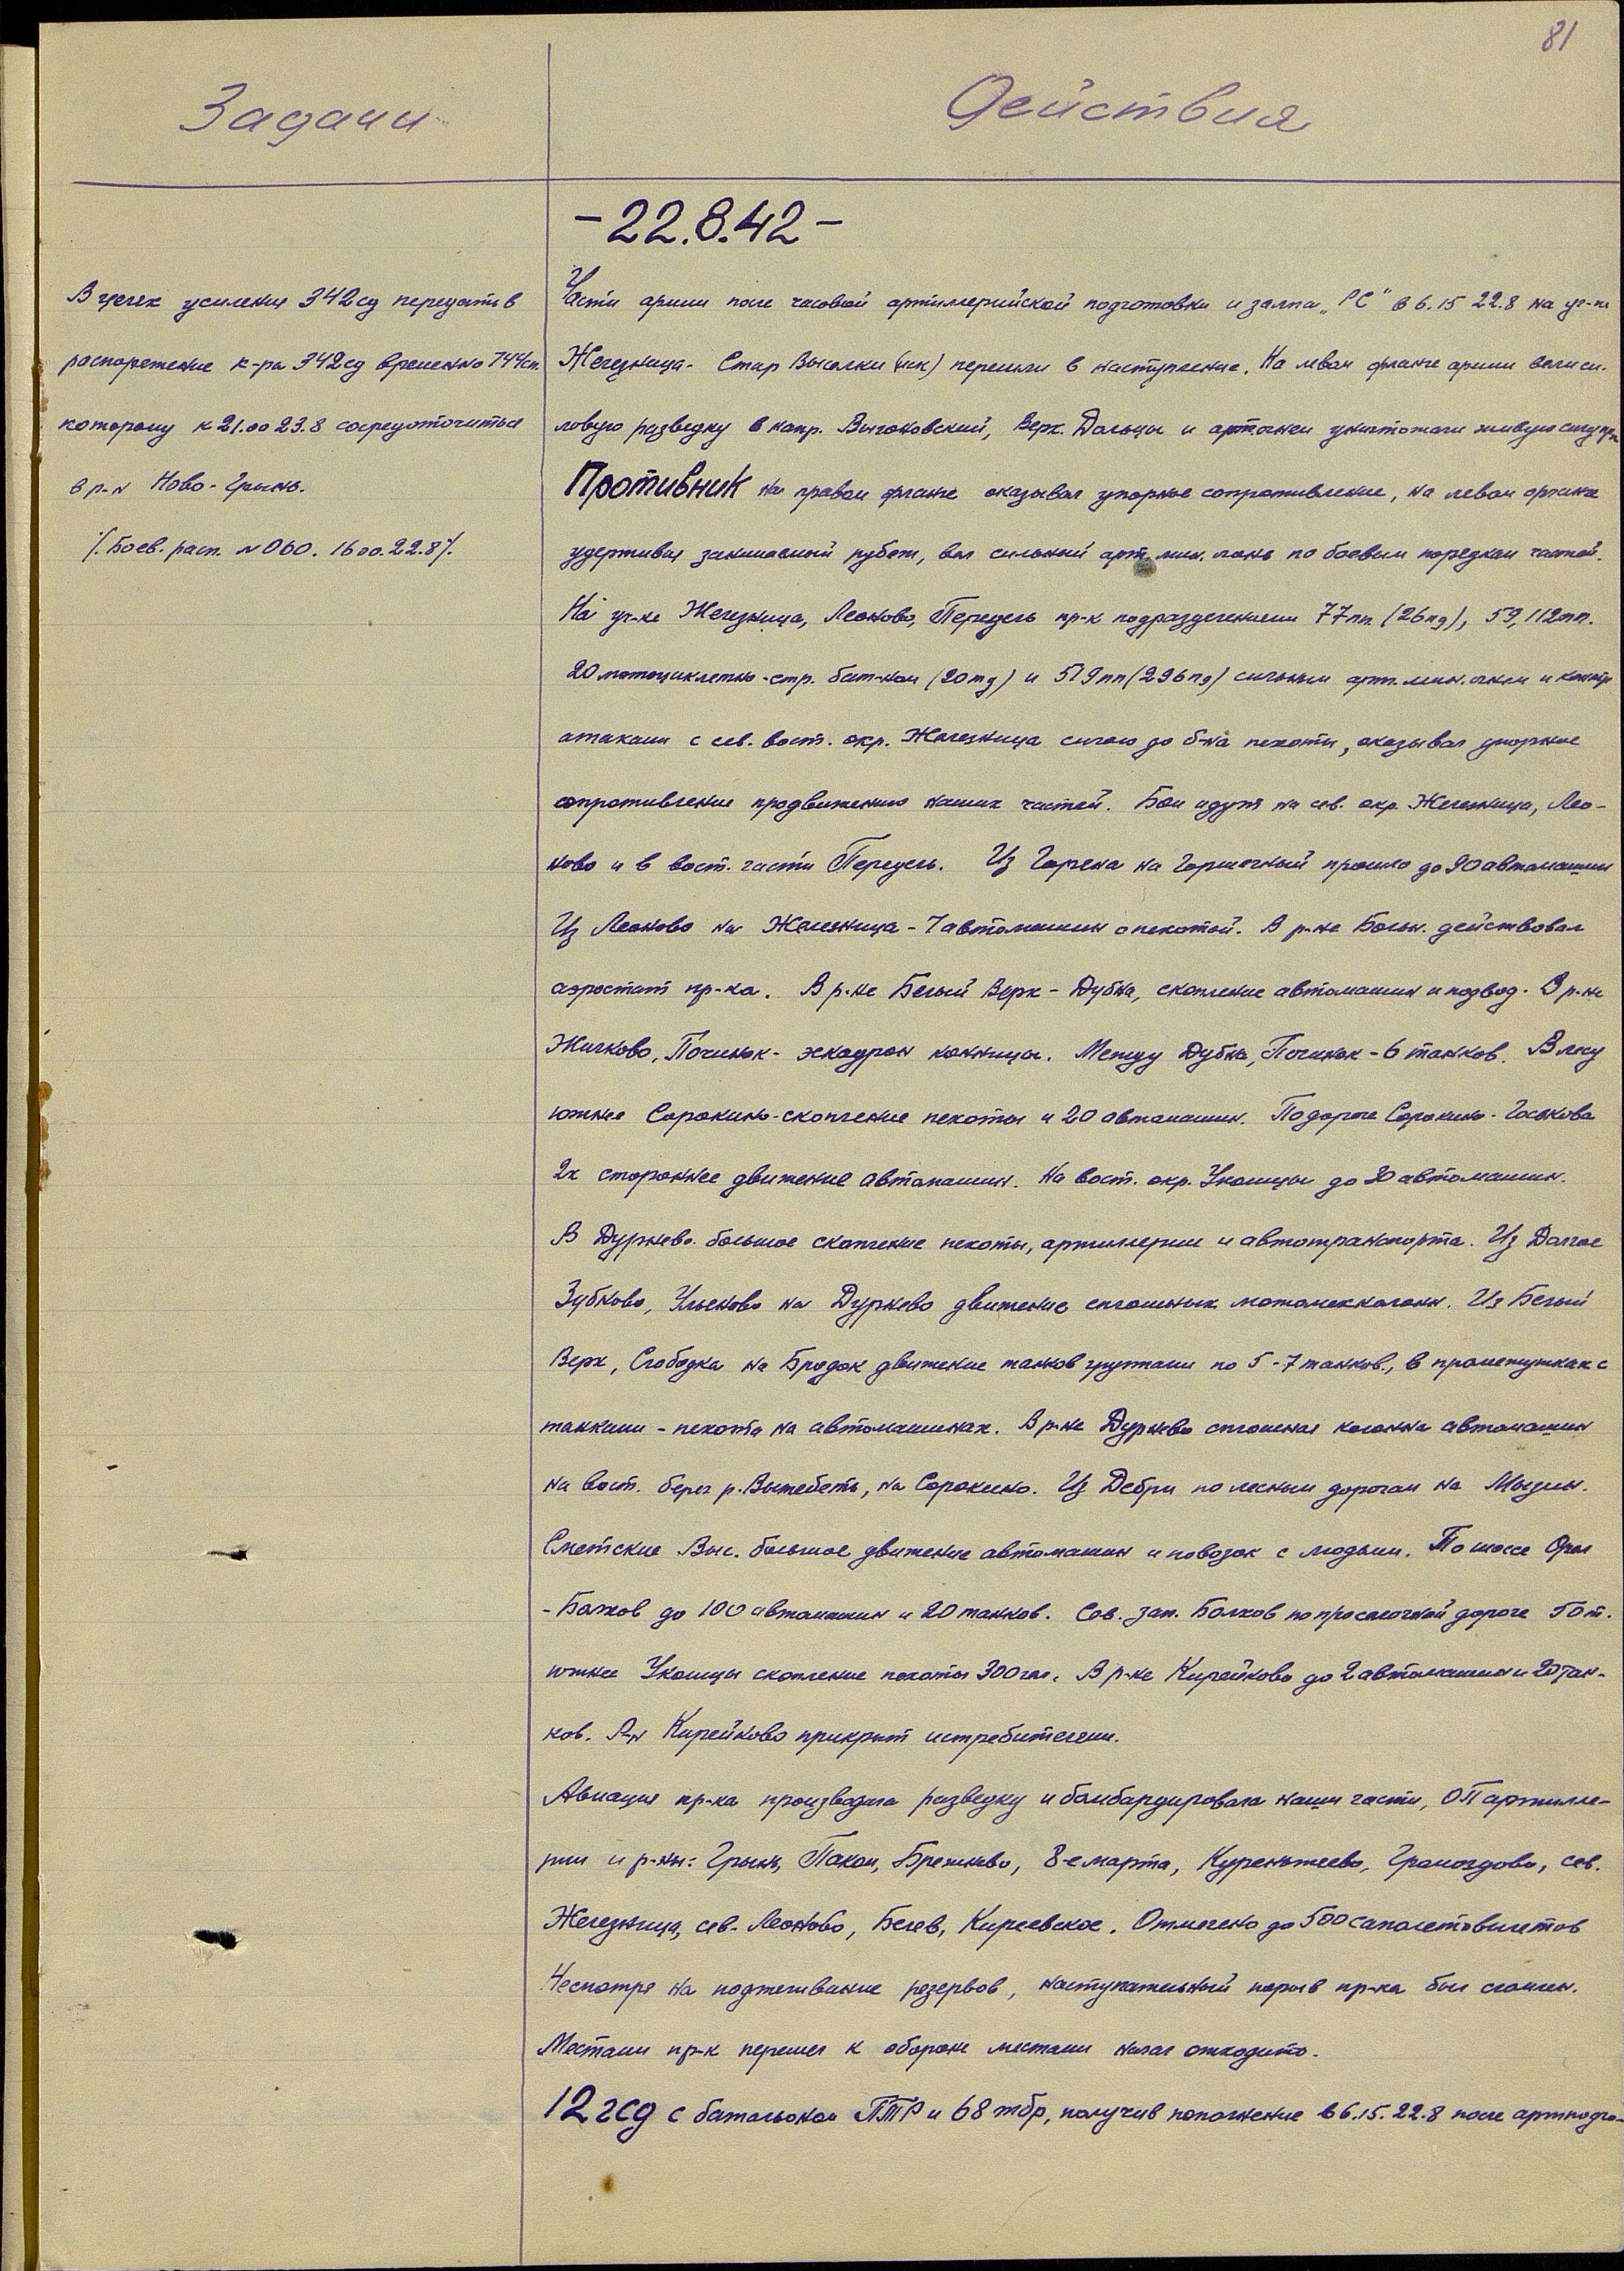 81
Задачи
Действия
-22.8.42-
В целях усиления 342 сд передать в
распоряжение к-ра 342 сд временно 744сп.
которому к 21.00 23.8 сосредоточиться
в р-н Ново-Грынь.
/. Боев. расп. №060. 16 00. 22.8 /.
Части армии после часовой артиллерийской подготовки и залпа „РС" в 6.15 22.8 на уч-ке
Железница - Стар Выселки (иск) перешли в наступление. На левом фланге армии вели си-
ловую разведку в напр. Вытоковский, Верх. Дольцы и артогнем уничтожали живую силу пр-ка
Противник на правом фланге оказывал упорное сопротивление, на левом фланге
удерживая занимаемый рубеж, вел сильный арт. мин. огонь по боевым порядкам частей.
На уч-ке Железница, Леоново, Передель пр-к подразделениями 77пп (26пд), 59, 112мп.
20 мотоциклетно-стр. бат-ном (20тд) и 519пп (296пд) сильным арт. мин. огнем и контр
атаками с сев. вост. окр. Железница силою до б-на пехоты, оказывал упорное
сопротивление продвижению наших частей. Бои идут на сев. окр. Железница, Лео-
ново и в вост. части Передель. Из на прошло до 90 автомашин
Из Леоново на Железница - 7 автомашин с пехотой. В р-не действовал
аэростат пр-ка. В р-не Белый Верх - Дубна, скопление автомашин и подвод. В р-не
Жилково, Починок - эскадрон конницы. Между Дубна, Починок - 6 танков. В лесу
южнее Сорокино - скопление пехоты и 20 автомашин. По дороге Сорокино - Госькова
2х стороннее движение автомашин. На вост. окр. Уколицы до 30 автомашин.
В Дурнево большое скопление пехоты, артиллерии и автотранспорта. Из Долгое
Зубково, Ульсково на Дурнево движение сплошных мотомехколонн. Из Белый
Верх, Слободка на Бродок движение танков группами по 5-7 танков, в промежутках с
танками - пехота на автомашинах. В р-не Дурнево сплошная колонна автомашин
на вост. берег р. Вытебеть, на Сорокино. Из Дебри по лесным дорогам на Мызин.
Сметские Выс. большое движение автомашин и повозок с людьми. По шоссе Орел
- Болхов до 100 автомашин и 20 танков. Сев. зап. Болхов по проселочной дороге 50 т.
южнее Уколицы скопление пехоты 300 чел. В р-не Кирейково до 2 автомашин и 20 тан-
ков. Р-н Кирейково прикрыт истребителями.
Авиация пр-ка производила разведку и бомбардировала наши части, ОП артилле-
рии и р-ны: Грынь, Паком, Брежнево, 8-е марта, Куреньтеево, Громоздово, сев.
Железница, сев. Леоново, Белев, Киреевское. Отмечено до 500 самолетовылетов
Несмотря на подтягивание резервов, наступательный порыв пр-ка был сломлен.
Местами пр-к перешел к обороне местами начал отходить.
12 гсд с батальоном ПТР и 68 тбр, получив пополнение в 6.15. 22.8 после артподго-